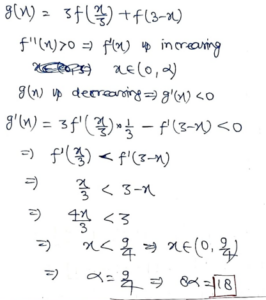 g(x) = 3f(x/3) + f(3-x)
f''(x)>0 ⇒ f'(x) is increasing
x∈(0, α)
g(x) is decreasing ⇒ g'(x) <0
g'(x) = 3f'(x/3)×1/3 - f'(3-x) <0
⇒ f'(x/3) < f'(3-x)
⇒ x/3 < 3-x
⇒ 4x/3 < 3
⇒ x< 9/4 ⇒ x∈(0, 9/4)
⇒ α= 9/4 ⇒ 8α= 18